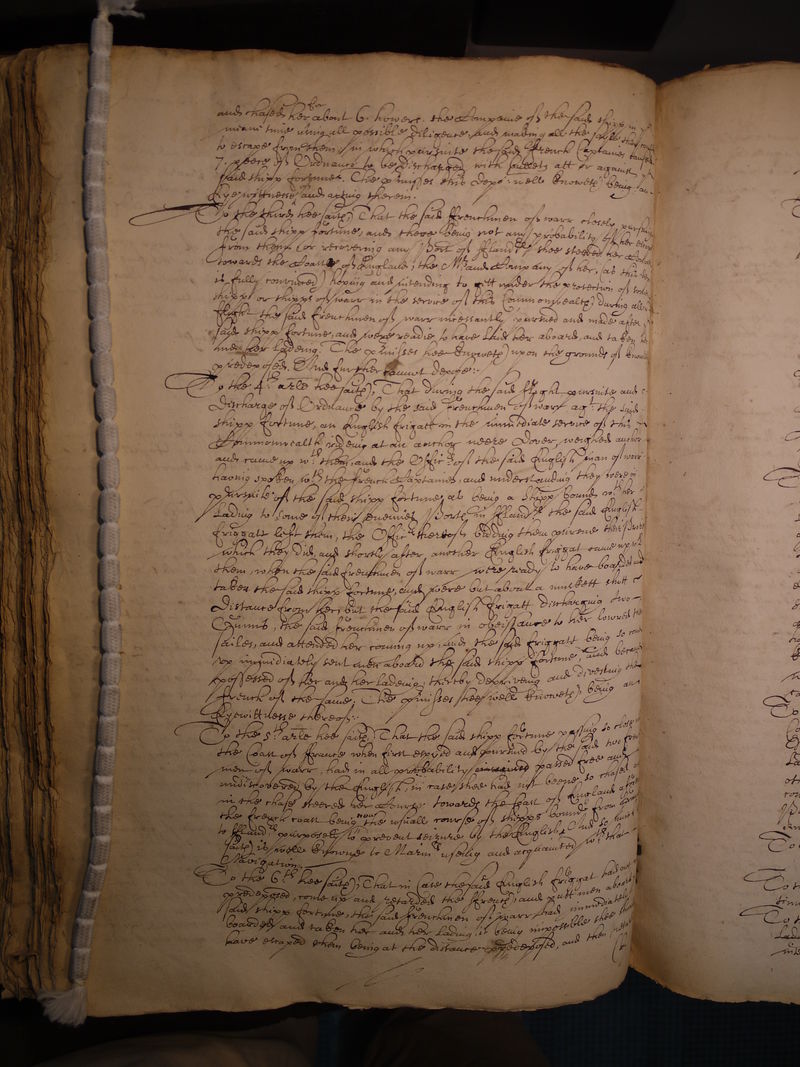 and chased her about 6. howers. the Companie of the said shipp in the
meane time using all possible diligence and making all the saile they could
to escape from them, in which pursuite the said french Captaines caused
7. peeces of Ordnance to be discharged with bullets att or against the
said shipp fortune. The premisses this depo.t well knoweth being an
Eyewittnesse and acting therein.
To the third hee saith, That the said Frenchmen of warr closely pursuing
the said shipp fortune, and there being not any probability of her escape
from them, or recovering any Port of Fland.rs, shee steered her Course
towards the Coast of England, the M.r and Company of her, (as this depo.t
is fully convinced) hoping and intending to gett under the protection of some
shipp or shipps of warr in the service of this Commonwealth, during all which
flight the said Frenchmen of warr incessantly pursued and made after the
said shipp fortune, and were readie to have laid her aboard, and taken her
and her ladeing. The premisses hee knoweth upon the grounds of knowledge
predeposed. And further cannot depose:-
To the 4.th ar.le hee saith, That during the said flight pursuite and
discharge of Ordnance by the said Frenchmen of warr ag.t the said
shipp fortune, an English frigatt in the immediate service of this
Commonwealth rideing at an anchor neere Dover, weighed anchor
and came up w.th them, and the Offic.rs of the said English man of warr
having spoken with the french Captaines, and understanding they were in
pursuite of the said shipp fortune, as being a shipp bound with her
lading to some of their enemies Ports in Fland.rs the said English
friggatt left them, the Offic.rs thereof bidding them pursue their
which they did, and shortly after, another English friggat came up w.th
them, when the said frenchmen of warr were ready to have boarded and
taken the said shipp fortune, and were but about a muskett shott
distance from her; but the said English frigatt discharging two
Gunns, the said frenchmen of warr in obeissance to her lowred their
sailes, and attended her coming up, and the said friggatt being so come
up immediately sent men aboard the said shipp fortune, and became
possessed of her and her ladeing, thereby depriveing and divesting the
french of the same; The premisses hee well knoweth being an
Eyewittnesse thereof:-
To the 5.th ar.le hee saith, That the said shipp fortune passing so close
the Coast of france when first espied and pursued by the said two french
men of warr, had in all probability passed free and
undiscovered by the English, in case shee had not beene so chased
in the chase steered her Course towards the Coast of England
the french coast being now the usuall course of shipps bound from
to Fland.rs purposely to prevent seizure by the English, And so much
saith is well knowne to Marin.rs useing and acquainted w.th that
Navigation.
To the 6.th hee saith, That in case the said English friggat had not
predeposed, come up and retarded the french, and putt men aboard the
said shipp fortune, the said frenchmen of warr had immediately
boarded and taken her and her lading, it being impossible shee should
have escaped them being at the distance predeposed, and the